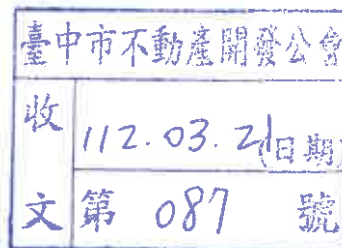 臺中市不動產開發公會
收 112.03.21(日期)
文 第 087 號